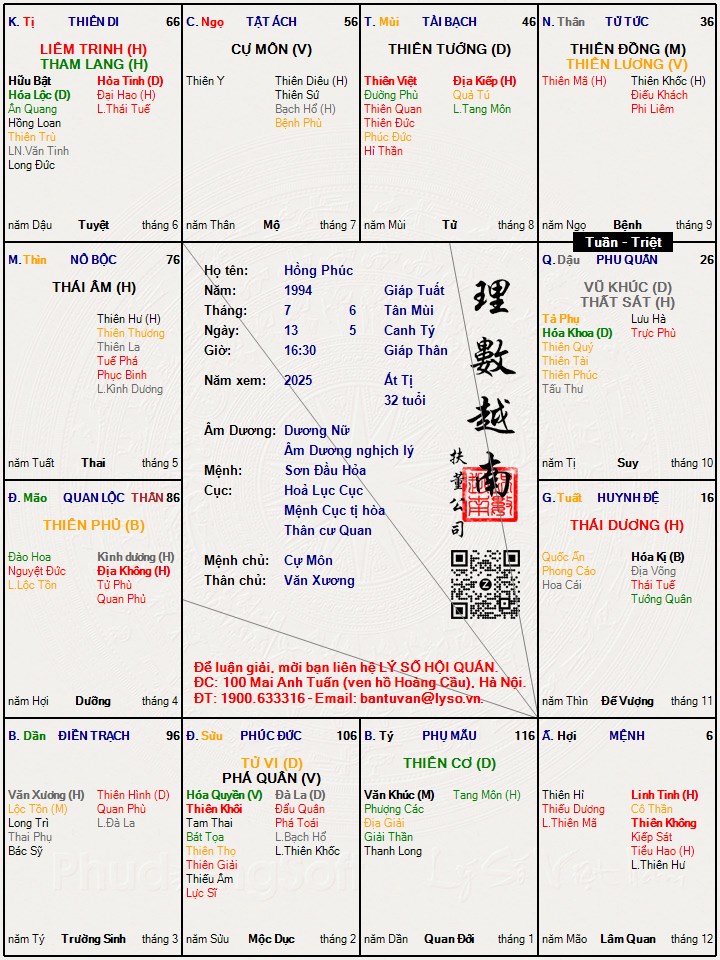 K. Tị THIÊN DI 66
LIÊM TRINH (H)
THAM LANG (H)
Hữu Bật Hỏa Tinh (D)
Hóa Lộc (D) Đại Hao (H)
Ân Quang L.Thái Tuế
Hồng Loan
Thiên Trù
LN.Văn Tinh
Long Đức
năm Dậu Tuyệt tháng 6
C. Ngọ TẬT ÁCH 56
CỰ MÔN (V)
Thiên Y Thiên Diêu (H)
Thiên Sứ
Bạch Hổ (H)
Bệnh Phù
năm Thân Mộ tháng 7
T. Mùi TÀI BẠCH 46
THIÊN TƯỚNG (D)
Thiên Việt Địa Kiếp (H)
Đường Phù Quả Tú
Thiên Quan L.Tang Môn
Thiên Đức
Phúc Đức
Hỉ Thần
năm Mùi Tử tháng 8
N. Thân TỬ TỨC 36
THIÊN ĐỒNG (M)
THIÊN LƯƠNG (V)
Thiên Mã (H) Thiên Khốc (H)
Điếu Khách
Phi Liêm
năm Ngọ Bệnh tháng 9
Tuần - Triệt
M. Thìn NÔ BỘC 76
THÁI ÂM (H)
Thiên Hư (H)
Thiên Thương
Thiên La
Tuế Phá
Phục Binh
L.Kình Dương
năm Tuất Thai tháng 5
Họ tên: Hồng Phúc
Năm: 1994 Giáp Tuất
Tháng: 7 6 Tân Mùi
Ngày: 13 5 Canh Tý
Giờ: 16:30 Giáp Thân
Năm xem: 2025 Ất Tị
32 tuổi
Âm Dương: Dương Nữ
Âm Dương nghịch lý
Mệnh: Sơn Đầu Hỏa
Cục: Hoả Lục Cục
Mệnh Cục tị hòa
Thân cư Quan
Mệnh chủ: Cự Môn
Thân chủ: Văn Xương
理數越南
扶董公司
Để luận giải, mời bạn liên hệ LÝ SỐ HỘI QUÁN.
ĐC: 100 Mai Anh Tuấn (ven hồ Hoàng Cầu), Hà Nội.
ĐT: 1900.633316 - Email: bantuvan@lyso.vn.
Q. Dậu PHU QUÂN 26
VŨ KHÚC (D)
THẤT SÁT (H)
Tả Phụ Lưu Hà
Hóa Khoa (D) Trực Phù
Thiên Quý
Thiên Tài
Thiên Phúc
Tấu Thư
năm Tị Suy tháng 10
Đ. Mão QUAN LỘC THÂN 86
THIÊN PHỦ (B)
Đào Hoa Kình dương (H)
Nguyệt Đức Địa Không (H)
L.Lộc Tồn Tử Phù
Quan Phủ
năm Hợi Dưỡng tháng 4
G. Tuất HUYNH ĐỆ 16
THÁI DƯƠNG (H)
Quốc Ấn Hóa Kị (B)
Phong Cáo Địa Võng
Hoa Cái Thái Tuế
Tướng Quân
năm Thìn Đế Vượng tháng 11
B. Dần ĐIỀN TRẠCH 96
Văn Xương (H) Thiên Hình (D)
Lộc Tồn (M) Quan Phù
Long Trì L.Đà La
Thai Phụ
Bác Sỹ
năm Tý Trường Sinh tháng 3
Đ. Sửu PHÚC ĐỨC 106
TỬ VI (D)
PHÁ QUÂN (V)
Hóa Quyền (V) Đà La (D)
Thiên Khôi Đẩu Quân
Tam Thai Phá Toái
Bát Tọa L.Bạch Hổ
Thiên Thọ L.Thiên Khốc
Thiên Giải
Thiếu Âm
Lực Sĩ
năm Sửu Mộc Dục tháng 2
B. Tý PHỤ MẪU 116
THIÊN CƠ (D)
Văn Khúc (M) Tang Môn (H)
Phượng Các
Địa Giải
Giải Thần
Thanh Long
năm Dần Quan Đới tháng 1
Ấ. Hợi MỆNH 6
Thiên Hỉ Linh Tinh (H)
Thiếu Dương Cô Thần
L.Thiên Mã Thiên Không
Kiếp Sát
Tiểu Hao (H)
L.Thiên Hư
năm Mão Lâm Quan tháng 12